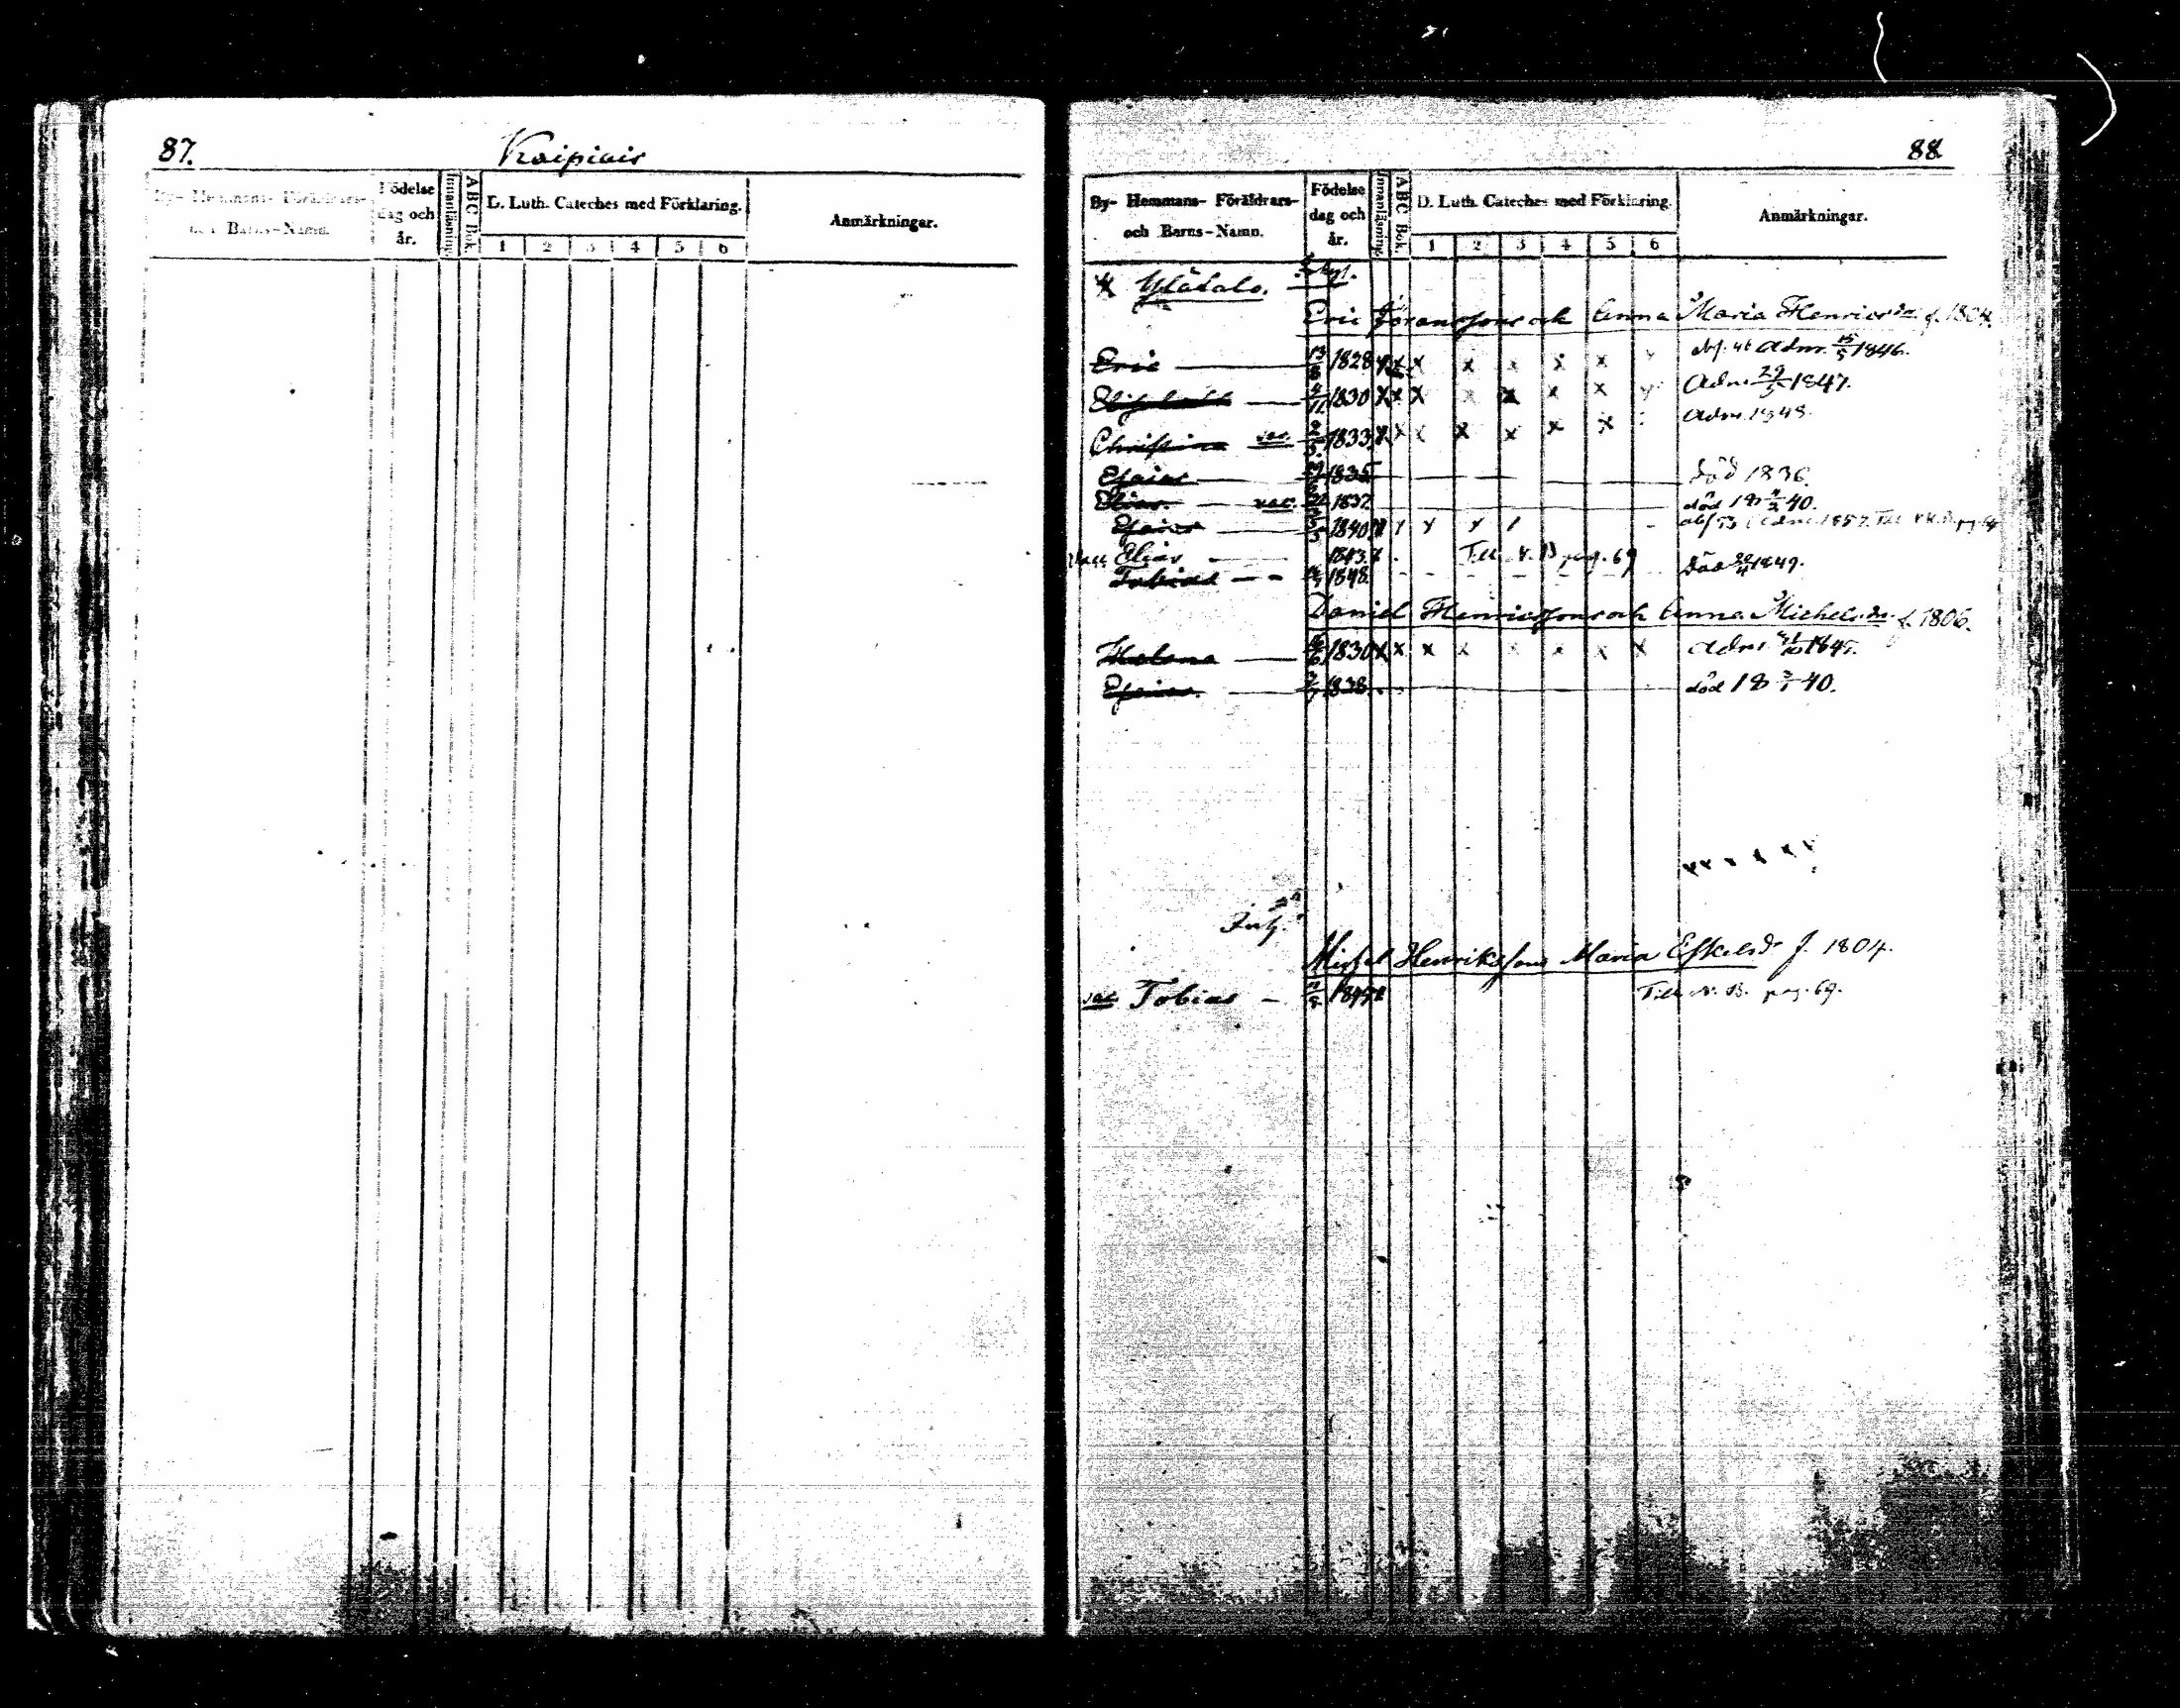 87.
Kaipiais
By- Hemmans- Föräldrars-
och Barns-Namn.
Födelse
dag och
år.
Innanläsning.
ABC Bok.
D. Luth. Cateches med Förklaring.
1 2 3 4 5 6
Anmärkningar.
88.
By- Hemmans- Föräldrars-
och Barns-Namn.
Födelse
dag och
år.
Innanläsning.
ABC Bok.
D. Luth. Cateches med Förklaring.
1 2 3 4 5 6
Anmärkningar.
4 Ylätalo.
Eric Göransson och Anna Maria Henricsdr f. 1804.
Eric 1828 x x x x x x adm. 15/5 1846.
Elisabeth 4/11 1830 x x x x x x x x Adm. 29/5 1847.
Christina vac. 1833 x x x x x x x Adm. 1848.
Esaias 1835 död 1836.
Elias. vac. 1837 död 18 40.
Esaias 1840 x x x Adm. 1857.
Elias 1843 Till N. B. pag. 69
Tobias 1848 död 1849.
Daniel Henricsson och Anna Michelsdr f. 1806.
Helena 1830 x x x x x x x x adm. 1845.
Esaias. 1838 död 18 40.
x x x x x x
Inh.
Michel Henriksson Maria Eskelsdr f. 1804.
vac. Tobias Till N. B. pag. 69.